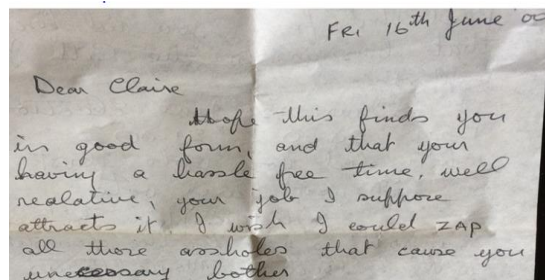 FRI 16th June 00
Dear Claire
Hope this finds you
in good form, and that your
having a hassle free time, well
realative, your job I suppose
attracts it. I wish I could ZAP
all those assholes that cause you
unecessary bother